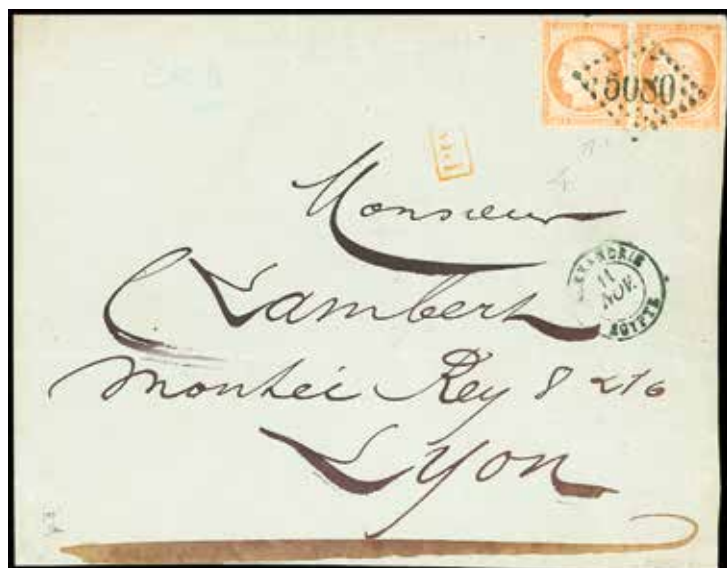 5080
PD
Monsieur
Lambert
ALEXANDRIE
11
NOV.
EGYPTE
Montée Rey 8 276
Lyon